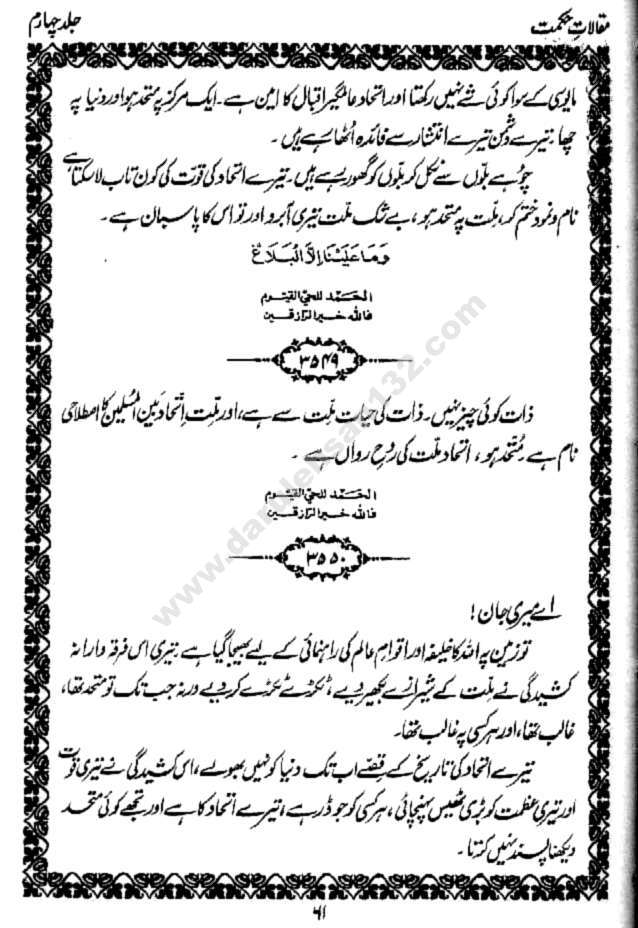 مقالاتِ حکمت
جلد چہارم
مایوسی کے سوا کوئی شے نہیں رکھتا اور اتحاد عالمگیر اقبال کا امین ہے۔ ایک مرکز پہ متحد ہو اور دنیا پہ
چھا۔ تیرے دشمن تیرے انتشار سے فائدہ اُٹھا رہے ہیں۔
چوہے بِلّوں سے نکل کر بلّوں کو گھور رہے ہیں۔ تیرے اتحاد کی قوّت کی کون تاب لا سکتا ہے
نام و نمود ختم کر، مِلّت پہ متحد ہو، بے شک ملّت تیری آبرو اور تُو اس کا پاسبان ہے۔
وَمَا عَلَيْنَا اِلَّا الْبَلَاغ
الحَمَد للحيّ القيّوم
فاللہ خیر الرّازقین
۳۵۴۹
ذات کوئی چیز نہیں۔ ذات کی حیات ملّت سے ہے، اور ملّت اِتحاد بَین المُسلمین کا اصطلاحی
نام ہے۔ مُتّحد ہو، اتحاد ملّت کی رُوحِ رواں ہے۔
الحَمَد للحيّ القيّوم
فاللہ خیر الرّازقین
۳۵۵۰
اے میری جان!
تو زمین پہ اللہ کا خلیفہ اور اقوامِ عالم کی راہنمائی کے لیے بھیجا گیا ہے۔ تیری اس فرقہ وارانہ
کشیدگی نے ملّت کے شیرازے بکھیر دیے، ٹکڑے ٹکڑے کر دیے ورنہ جب تک تو متحد تھا،
غالب تھا، اور ہر کسی پہ غالب تھا۔
تیرے اتحاد کی تاریخ کے قصّے اب تک دنیا کو نہیں بھولے، اس کشیدگی نے تیری قوت
اور تیری عظمت کو بڑی ٹھیس پہنچائی، ہر کسی کو جو ڈر ہے، تیرے اتحاد کا ہے اور تجھے کوئی متحد
دیکھنا پسند نہیں کرتا۔
۶۱
www.darulehsan132.com